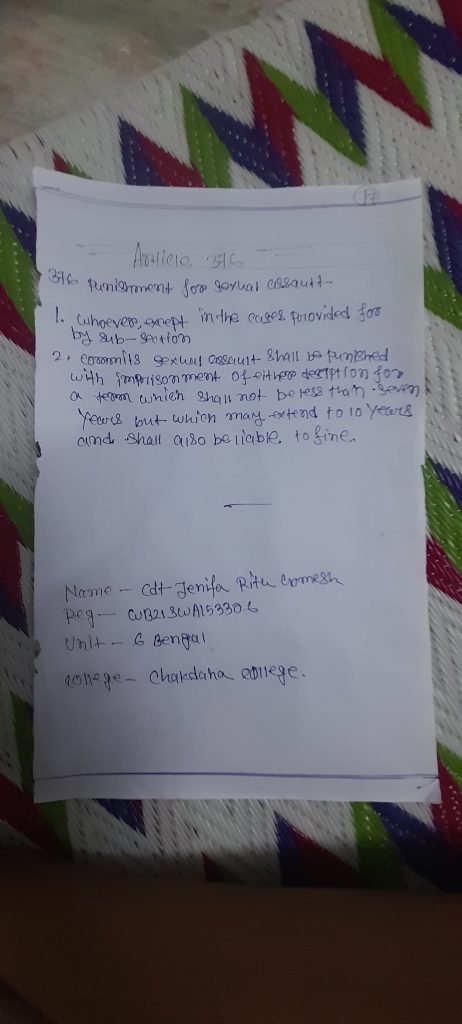 17
Article 376
376 punishment for sexual assault-
1. whoever, except in the cases provided for
by sub-section
2. commits sexual assault shall be punished
with imprisonment of either desciption for
a term which shall not be less than seven
years but which may extend to 10 years
and shall also be liable. to fine.
Name - Cdt Jenifa Ritu Gomesh
Reg - WB21SWA153306
Unit - 6 Bengal
college - Chakdaha college.